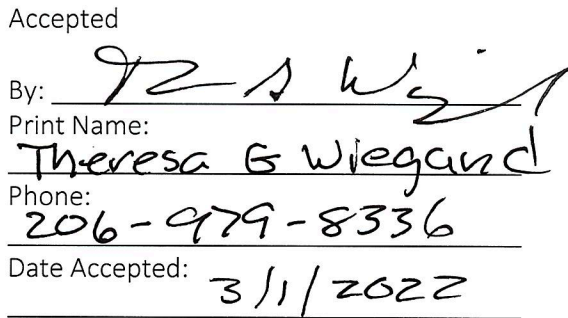 Accepted
By:
Print Name:
Theresa G Wiegand
Phone:
206-979-8336
Date Accepted: 3/1/2022